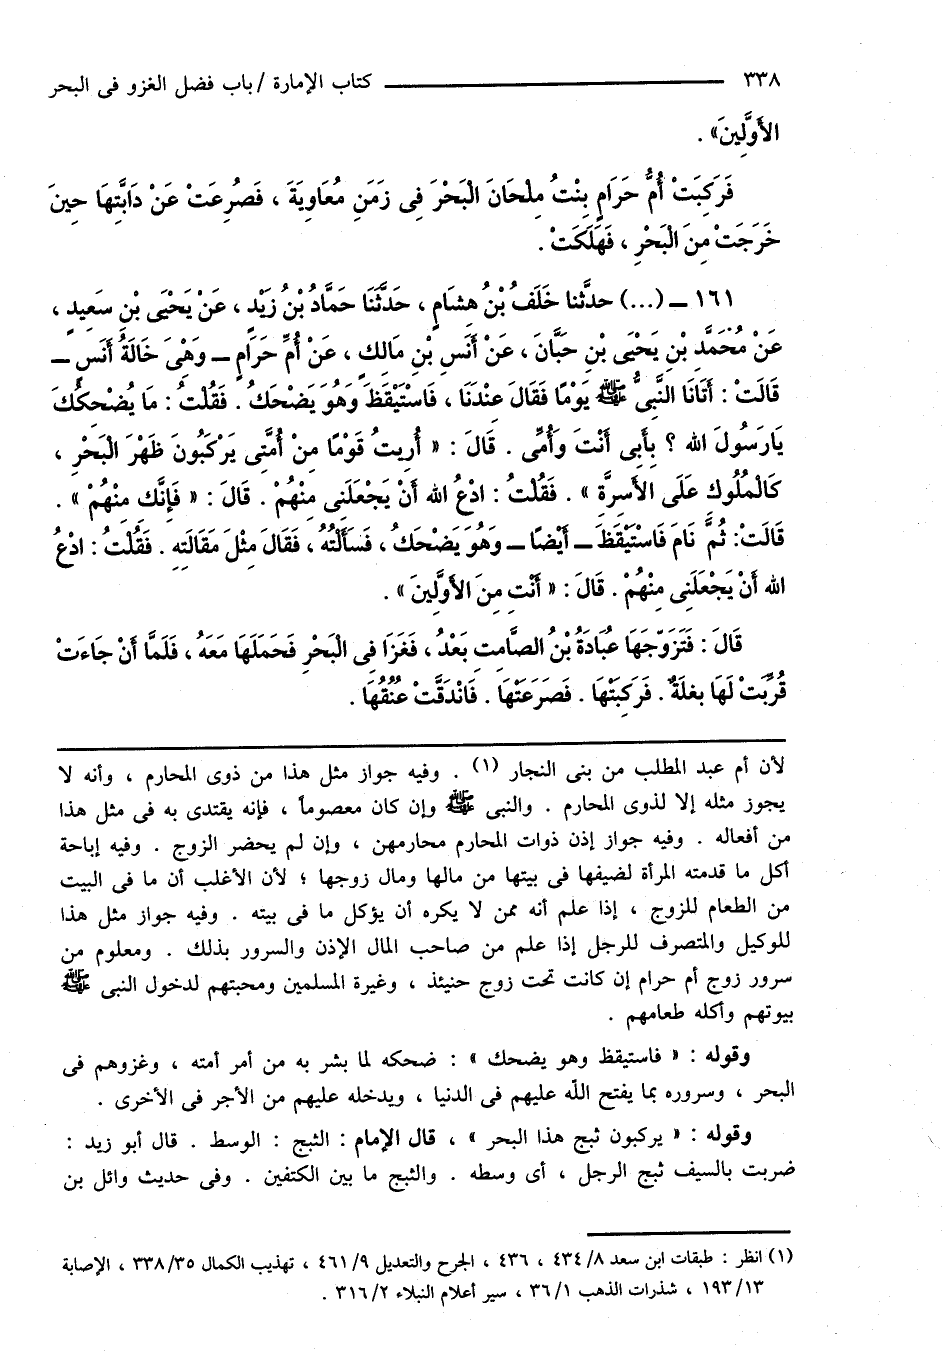 ٣٣٨ ـــــــــــــــــ كتاب الإمارة / باب فضل الغزو فى البحر
الأَوَّلِينَ» .
فَرَكِبَتْ أُمُّ حَرَامٍ بِنْتُ مِلْحَانَ الْبَحْرَ فِى زَمَنِ مُعَاوِيَةَ ، فَصُرِعَتْ عَنْ دَابَّتِهَا حِينَ
خَرَجَتْ مِنَ الْبَحْرِ ، فَهَلَكَتْ .
١٦١ ــ (...) حدَّثنا خَلَفُ بْنُ هِشَامٍ ، حَدَّثَنَا حَمَّادُ بْنُ زَيْدٍ ، عَنْ يَحْيَى بْنِ سَعِيدٍ ،
عَنْ مُحَمَّدِ بْنِ يَحْيَى بْنِ حَبَّانَ ، عَنْ أَنَسِ بْنِ مَالِكٍ ، عَنْ أُمِّ حَرَامٍ ــ وَهْىَ خَالَةُ أَنَسٍ ــ
قَالَتْ : أَتَانَا النَّبِىُّ ﷺ يَوْمًا فَقَالَ عِنْدَنَا ، فَاسْتَيْقَظَ وَهُوَ يَضْحَكُ . فَقُلْتُ : مَا يُضْحِكُكَ
يَارَسُولَ الله ؟ بِأَبِى أَنْتَ وَأُمِّى . قَالَ : « أُرِيتُ قَوْمًا مِنْ أُمَّتِى يَرْكَبُونَ ظَهْرَ الْبَحْرِ ،
كَالْمُلُوكِ عَلَى الأَسِرَّةِ » . فَقُلْتُ : ادْعُ الله أَنْ يَجْعَلَنِى مِنْهُمْ . قَالَ : « فَإِنَّكِ مِنْهُمْ » .
قَالَتْ: ثُمَّ نَامَ فَاسْتَيْقَظَ ــ أَيْضًا ــ وَهُوَ يَضْحَكُ ، فَسَأَلْتُهُ ، فَقَالَ مِثْلَ مَقَالَتِهِ . فَقُلْتُ : ادْعُ
الله أَنْ يَجْعَلَنِى مِنْهُمْ . قَالَ : « أَنْتِ مِنَ الأَوَّلِينَ » .
قَالَ : فَتَزَوَّجَهَا عُبَادَةُ بْنُ الصَّامِتِ بَعْدُ ، فَغَزَا فِى الْبَحْرِ فَحَمَلَهَا مَعَهُ ، فَلَمَّا أَنْ جَاءَتْ
قُرِّبَتْ لَهَا بِغْلَةٌ . فَرَكِبَتْهَا . فَصَرَعَتْهَا . فَانْدَقَّتْ عُنُقُهَا .
لأن أم عبد المطلب من بنى النجار (١) . وفيه جواز مثل هذا من ذوى المحارم ، وأنه لا
يجوز مثله إلا لذوى المحارم . والنبى ﷺ وإن كان معصوماً ، فإنه يقتدى به فى مثل هذا
من أفعاله . وفيه جواز إذن ذوات المحارم محارمهن ، وإن لم يحضر الزوج . وفيه إباحة
أكل ما قدمته المرأة لضيفها فى بيتها من مالها ومال زوجها ؛ لأن الأغلب أن ما فى البيت
من الطعام للزوج ، إذا علم أنه ممن لا يكره أن يؤكل ما فى بيته . وفيه جواز مثل هذا
للوكيل والمتصرف للرجل إذا علم من صاحب المال الإذن والسرور بذلك . ومعلوم من
سرور زوج أم حرام إن كانت تحت زوج حنيئذ ، وغيرة المسلمين ومحبتهم لدخول النبى ﷺ
بيوتهم وأكله طعامهم .
وقوله : « فاستيقظ وهو يضحك » : ضحكه لما بشر به من أمر أمته ، وغزوهم فى
البحر ، وسروره بما يفتح اللّه عليهم فى الدنيا ، ويدخله عليهم من الأجر فى الأخرى .
وقوله : « يركبون ثبج هذا البحر » ، قال الإمام : الثبج : الوسط . قال أبو زيد :
ضربت بالسيف ثبج الرجل ، أى وسطه . والثبج ما بين الكتفين . وفى حديث وائل بن
(١) انظر : طبقات ابن سعد ٨/ ٤٣٤ ، ٤٣٦ ، الجرح والتعديل ٩/ ٤٦١ ، تهذيب الكمال ٣٥/ ٣٣٨ ، الإصابة
١٣/ ١٩٣ ، شذرات الذهب ١/ ٣٦ ، سير أعلام النبلاء ٢/ ٣١٦ .